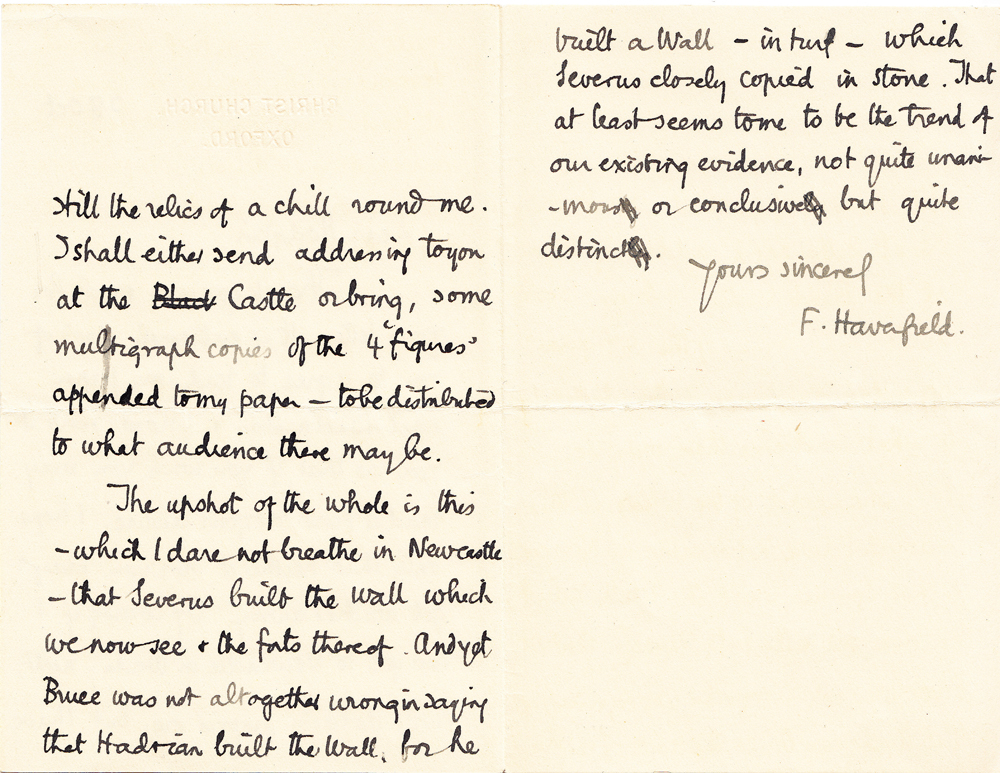 still the relics of a chill round me.
I shall either send addressing to you
at the Black Castle or bring, some
multigraph copies of the 4 'figures'
appended to my paper – to be distributed
to what audience there may be.
The upshot of the whole is this
– which I dare not breathe in Newcastle
– that Severus built the Wall which
we now see & the forts thereof. And yet
Bruce was not altogether wrong in saying
that Hadrian built the Wall, for he
built a Wall – in turf – which
Severus closely copied in stone. That
at least seems to me to be the trend of
our existing evidence, not quite unani-
-mous or conclusive but quite
distinct.
Yours sincerel
F. Haverfield.
CHRIST CHURCH,
OXFORD.